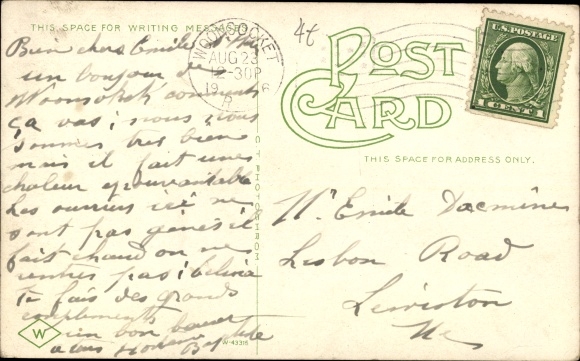 THIS SPACE FOR WRITING MESSAGES
4¢
WOONSOCKET
AUG 23
2-30P
19 6
R.
U.S. POSTAGE
1 CENT 1
POST
CARD
THIS SPACE FOR ADDRESS ONLY.
Bien chers Emile
un bonjour de
Woonsoket comment
ça vas; nous, nous
sommes tres bien
mais il fait une
chaleur epouvaitable
Les ouvriers ici ne
sont pas génés il
fait chaud on ne
rentres pas; belina
te fais des grands
compléments
un bon baiser
a tous
Mr Emile Dacmine
Lisbon Road
Lewiston
Me
W
W-43315